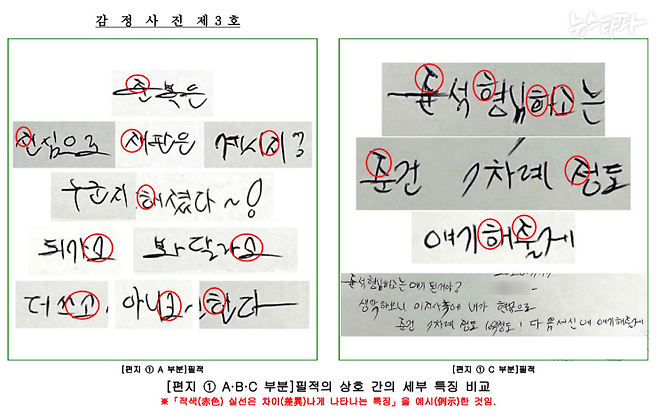 감 정 사 진 제 3 호
뉴스타파
준 복은
진심으로 재판은 계시지?
해졌다~!
되가고 봐달라고
더 쓰고, 아니고, 한다
윤석형님하고는
준건 1차례 정도
얘기해줄게
윤석형님하고는 얘기 된거야?
생각해보니 이지사 측에 내가 현금으로
준건 1차례 정도 다음 서신에 얘기해줄게
[편지 ① A 부분]필적
[편지 ① C 부분]필적
[편지 ① A·B·C 부분]필적의 상호 간의 세부 특징 비교
※「적색(赤色) 실선은 차이(差異)나게 나타나는 특징」을 예시(例示)한 것임.